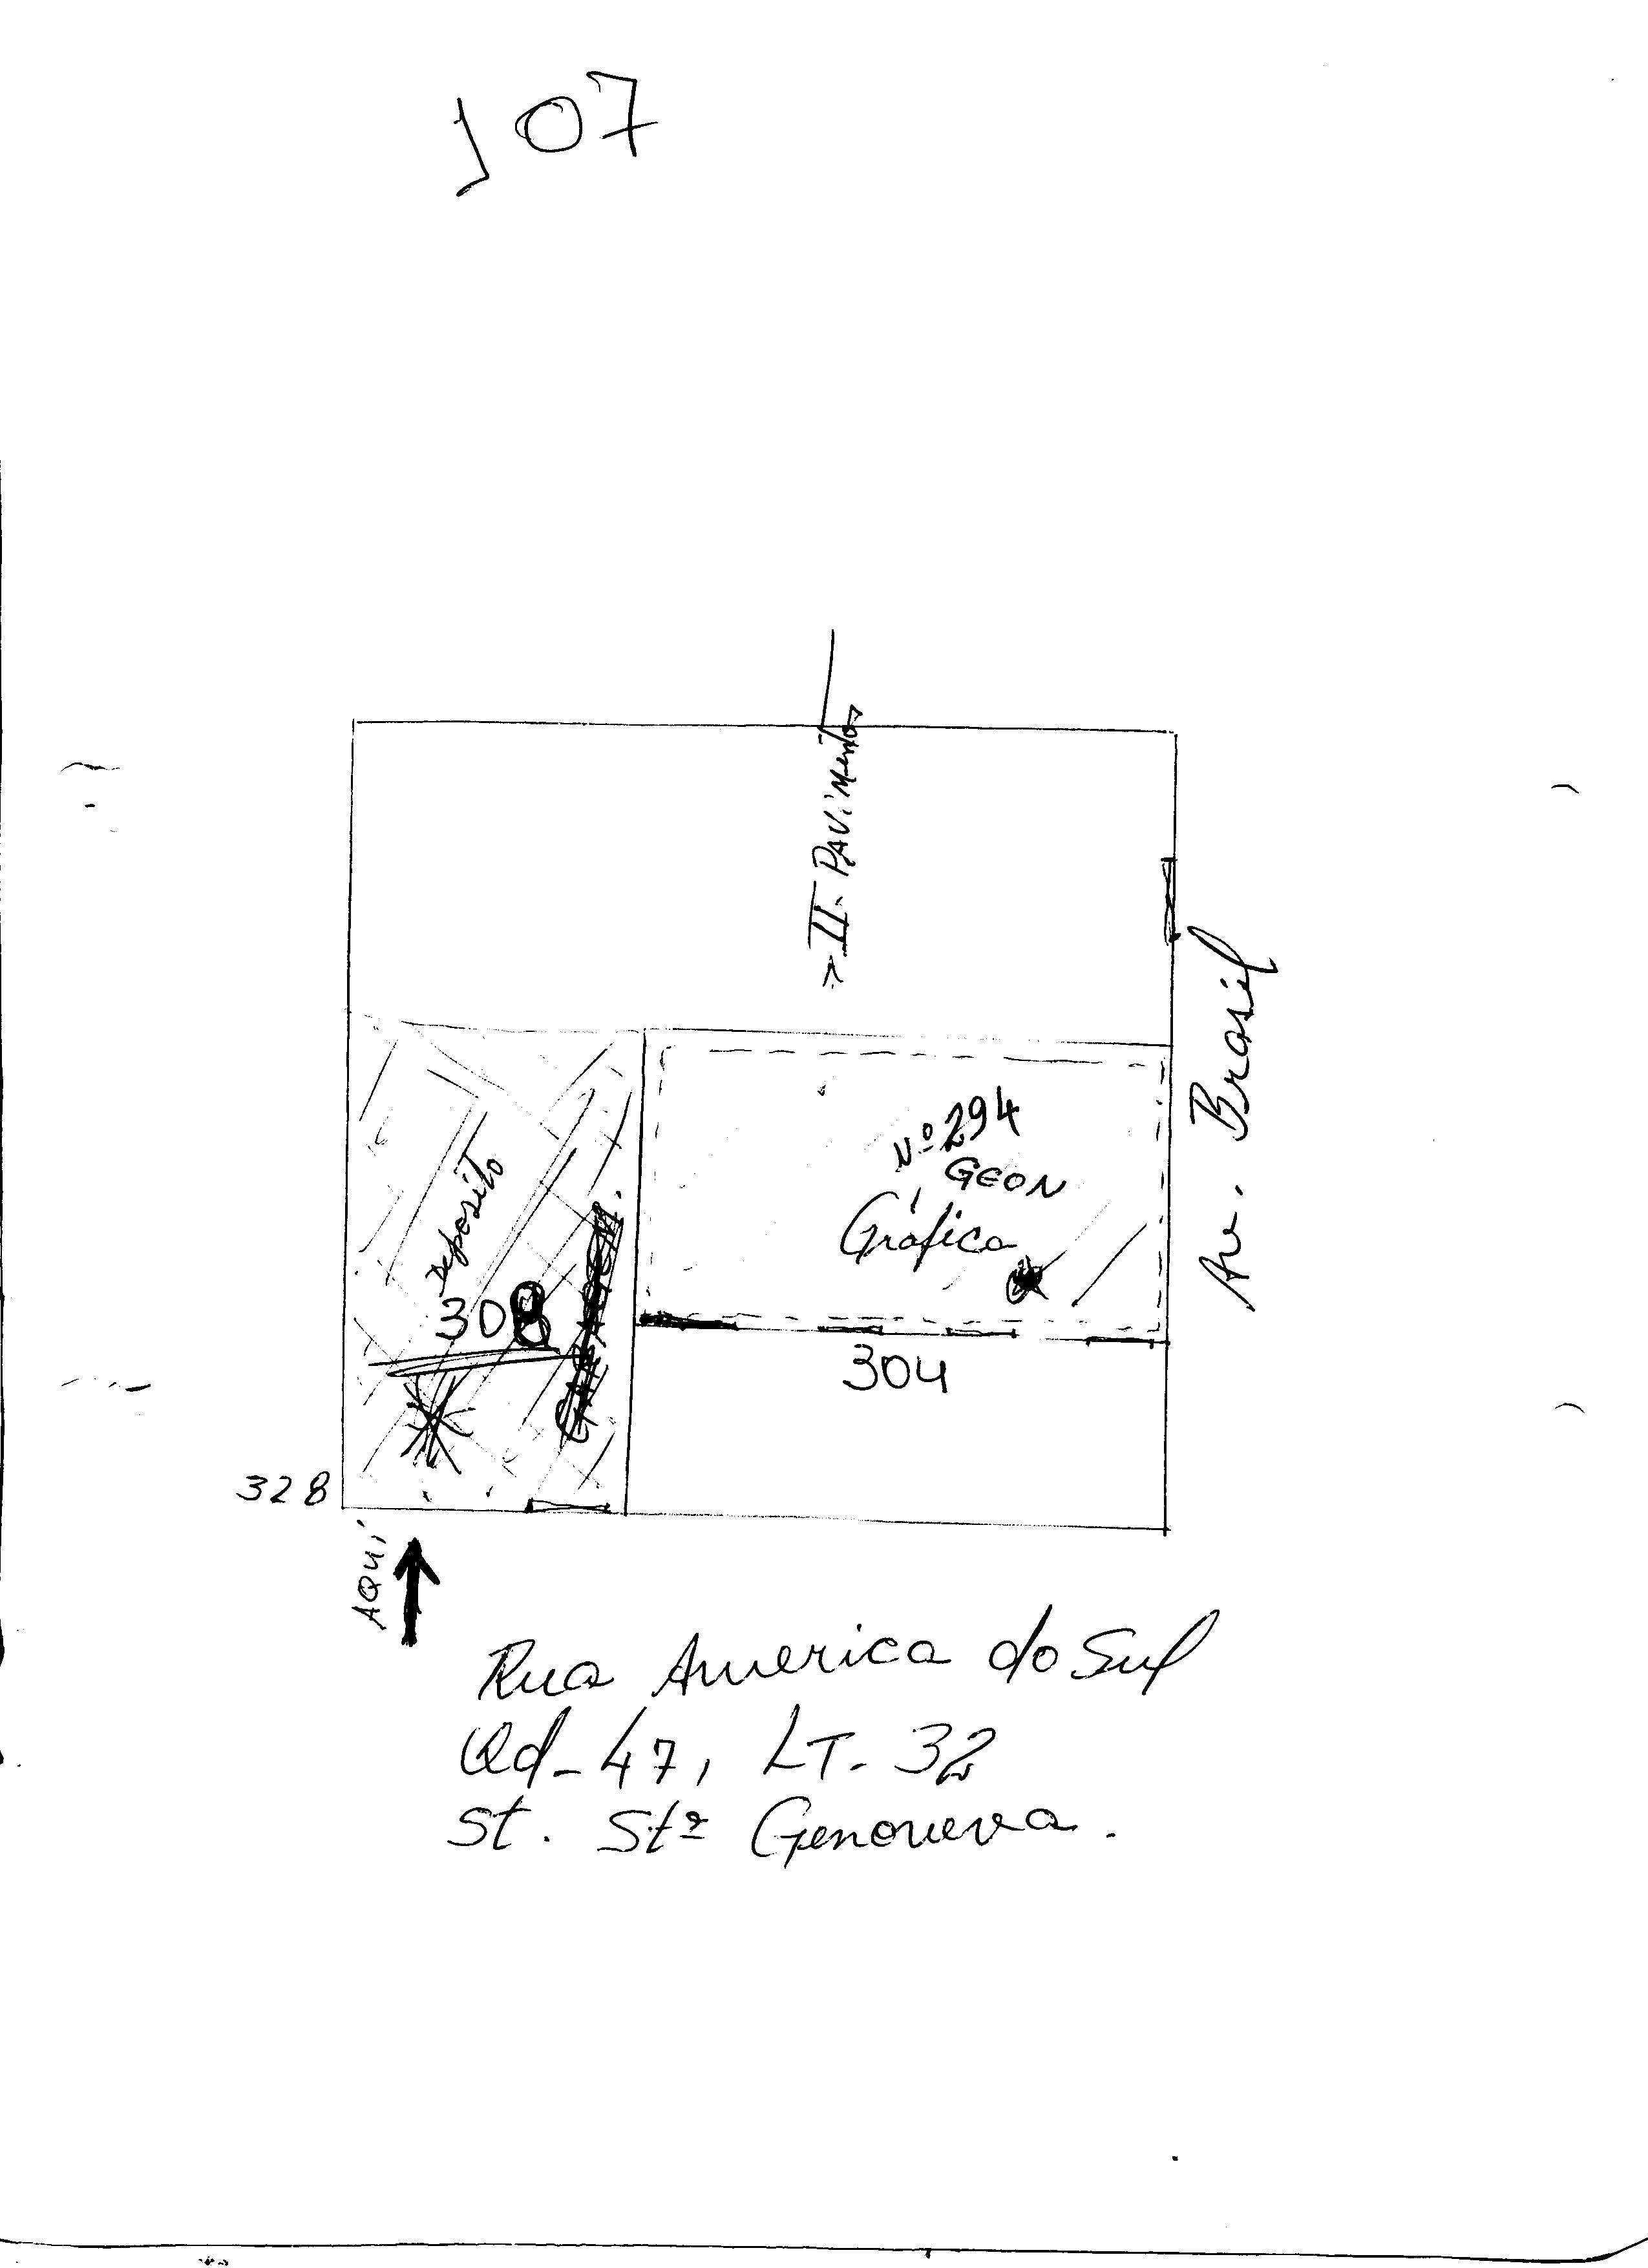 107
II. Pavimento
Av. Brasil
Nº 294
GEON
Gráfica
Deposito
308
304
328
AQUI
Rua America do Sul
Qd - 47, LT. 32
St. Stª Genoveva.